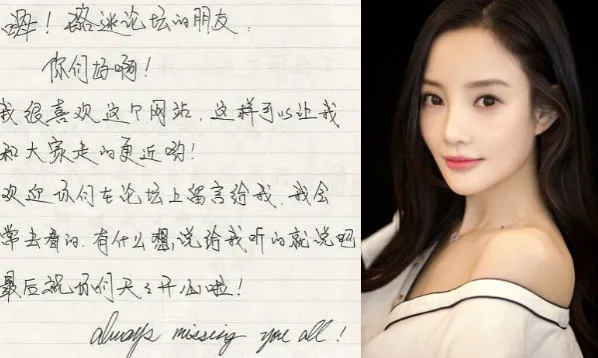 ！璐迷论坛的朋友.
你们好啊！
我很喜欢这个网站，这样可以让我
和大家走的更近哟！
欢迎你们在论坛上留言给我，我会
常去看的，有什么想说给我听的就说吧
最后祝你们天々开心啦！
always missing you all !